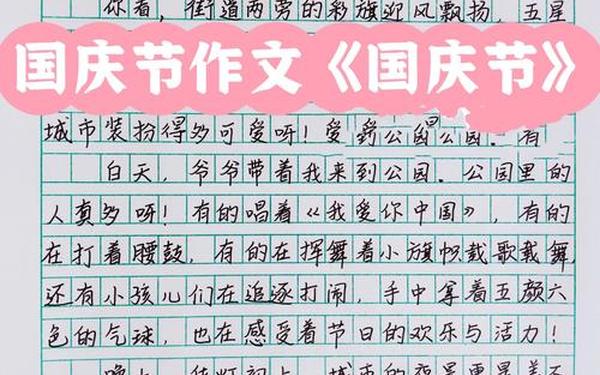 你看,街道两旁的彩旗迎风飘扬,五星
国庆节作文《国庆节》
城市装扮得多可爱呀!爱 公园公园.有
白天,爷爷带着我来到公园.公园里的
人真多呀!有的唱着《我爱你中国》,有的
在打着腰鼓,有的在挥舞着小旗帜载歌载舞,
还有小孩儿们在追逐打闹,手中拿着五颜六
色的气球,也在感受着节日的欢乐与活力!
晚上,华灯初上,城市的夜景更是美不